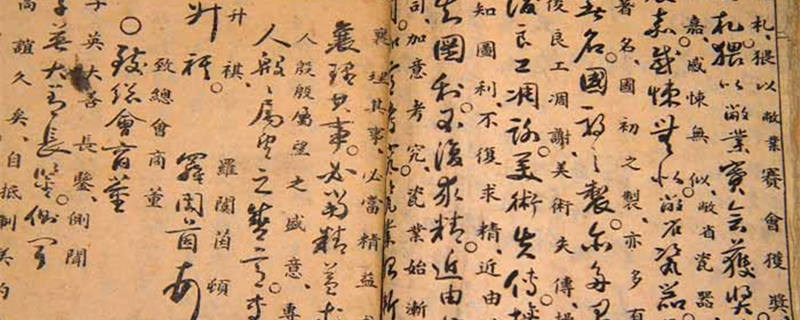 札、猥以敝業賽會獲獎、
札。猥以敝業賽會獲獎
嘉、感悚無似、敝省瓷器、
嘉。感悚無似。敝省瓷器
著名、國初之製、亦多有
著名。國初之製。亦多
後良工凋謝、美術失傳、
後良工凋謝。美術失傳
知圖利、不復求精、近由
知圖利。不復求精。近由
司、加意考究、瓷業始漸
加意考究。瓷業始漸
襄理其事、必當精益
襄理其事。必當精益求
人殷殷屬望之盛意、專
人殷殷屬望之盛意。專
升祺、羅閏茵頓
升祺。羅閏茵頓
致總會商董
致總會商董
子英大善長鑒、側聞
子英大善長鑒。側聞
高誼久矣、自抵制美約